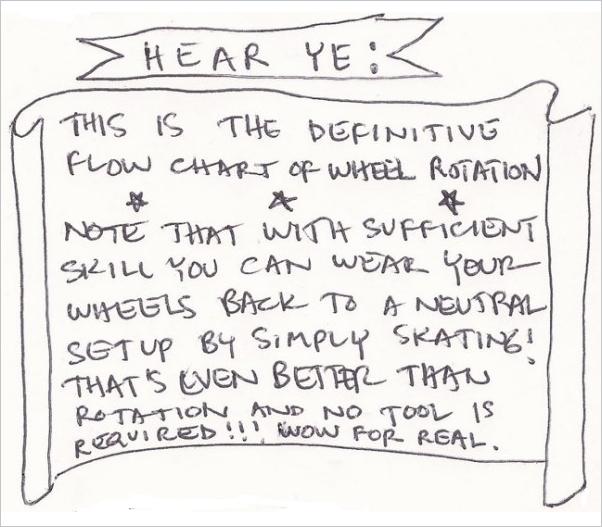 HEAR YE:
THIS IS THE DEFINITIVE
FLOW CHART OF WHEEL ROTATION
NOTE THAT WITH SUFFICIENT
SKILL YOU CAN WEAR YOUR
WHEELS BACK TO A NEUTRAL
SETUP BY SIMPLY SKATING!
THAT'S EVEN BETTER THAN
ROTATION AND NO TOOL IS
REQUIRED!!! WOW FOR REAL.